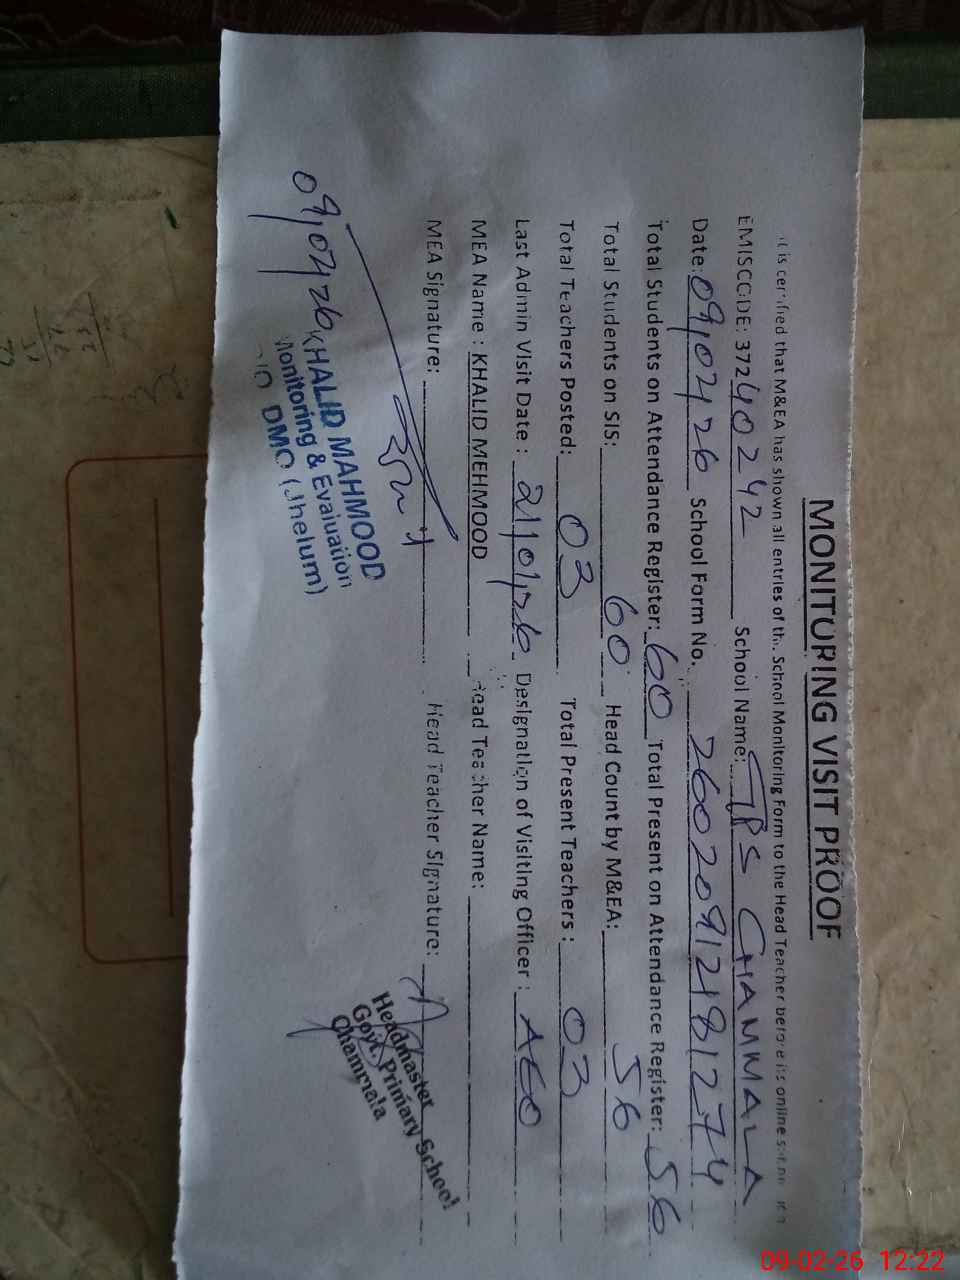 MONITORING VISIT PROOF
It is certified that M&EA has shown all entries of the School Monitoring Form to the Head Teacher before its online
EMISCODE: 37240242 School Name: GPS CHAMMALA
Date: 09/02/26 School Form No. 260209121812774
Total Students on Attendance Register: 60 Total Present on Attendance Register: 56
Total Students on SIS: 60 Head Count by M&EA: 56
Total Teachers Posted: 03 Total Present Teachers : 03
Last Admin Visit Date : 21/01/26 Designation of Visiting Officer : AEO
MEA Name : KHALID MEHMOOD Head Teacher Name:
MEA Signature: Head Teacher Signature:
09/02/26
KHALID MAHMOOD
Monitoring & Evaluation
DMO (Jhelum)
Headmaster
Govt. Primary School
Chammala
09-02-26 12:22